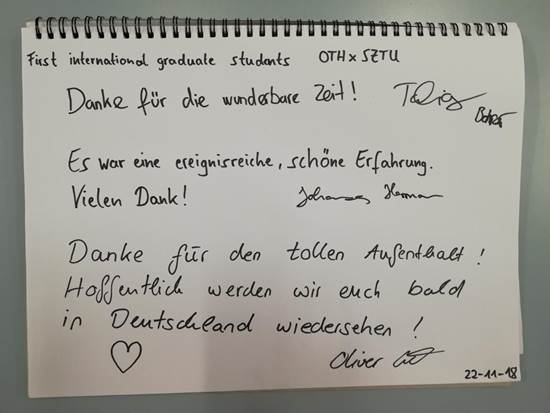 First international graduate students OTH x SZTU
Danke für die wunderbare Zeit!
Es war eine ereignisreiche, schöne Erfahrung.
Vielen Dank! Johannes Hermann
Danke für den tollen Aufenthalt!
Hoffentlich werden wir euch bald
in Deutschland wiedersehen!
Oliver
22-11-18